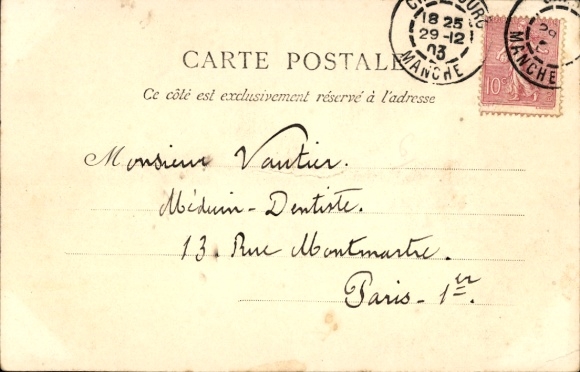 CHERBOURG
18 25
29-12
03
MANCHE
29
MANCHE
10c
CARTE POSTALE
Ce côté est exclusivement réservé à l'adresse
Monsieur Vautier.
Médecin-Dentiste.
13. Rue Montmartre.
Paris-1er.